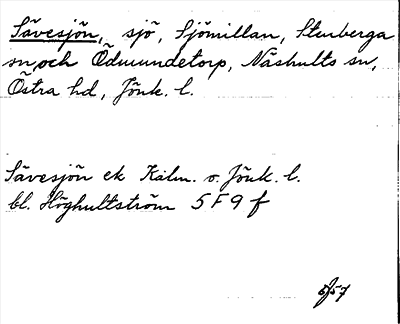 Sävesjön, sjö, Sjömillan, Stenberga
sn, och Ödmundetorp, Näshults sn,
Östra hd, Jönk. l.
Sävesjön ek Kalm. o. Jönk. l.
bl. Höghultström 5F9f